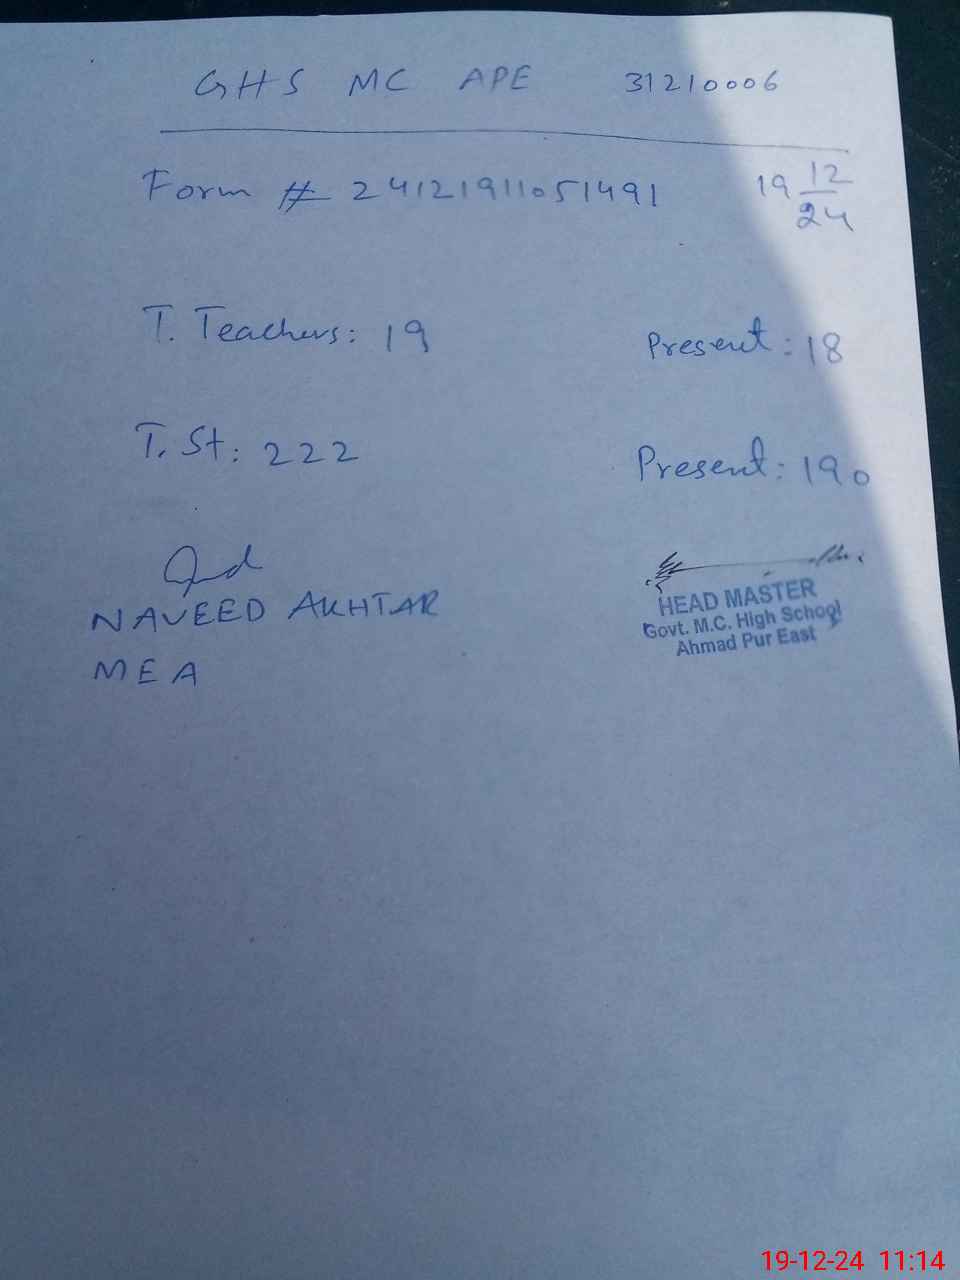 GHS MC APE 31210006
Form # 24121911051491 19 12/24
T. Teachers: 19 Present: 18
T. St: 222 Present: 190
NAVEED AKHTAR
MEA
HEAD MASTER
Govt. M.C. High School
Ahmad Pur East
19-12-24 11:14